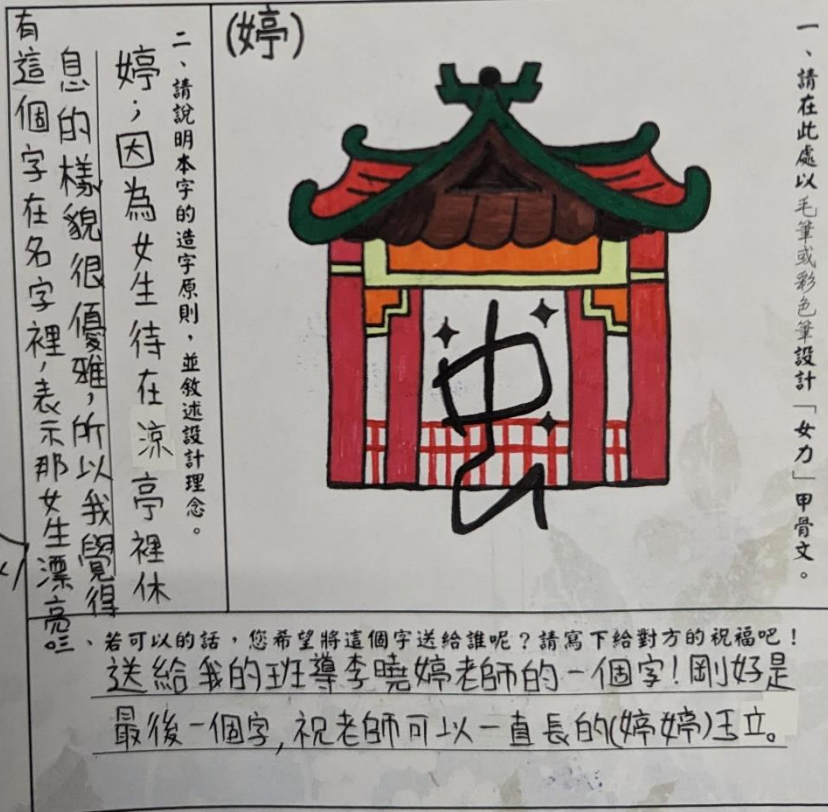 一、請在此處以毛筆或彩色筆設計「女力」甲骨文。
(婷)
二、請說明本字的造字原則，並敘述設計理念。
婷；因為女生待在涼亭裡休
息的樣貌很優雅，所以我覺得
有這個字在名字裡，表示那女生漂亮
三、若可以的話，您希望將這個字送給誰呢？請寫下給對方的祝福吧！
送給我的班導李曉婷老師的一個字！剛好是
最後一個字，祝老師可以一直長的(婷婷)玉立。